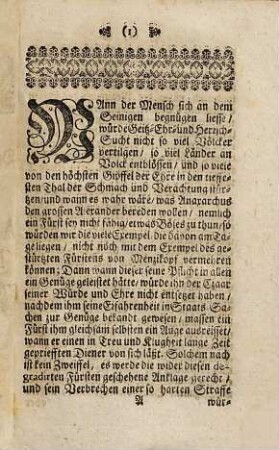 (1)
WAnn der Mensch sich an dem
Seinigen begnügen liesse/
würde Geitz-Ehr- und Herrsch-
Sucht nicht so viel Völcker
vertilgen/ so viel Länder an
Volck entblössen/ und so viele
von den höchsten Gipffel der Ehre in den tieffe-
sten Thal der Schmach und Verachtung stür-
tzen/ und wann es wahr wäre/ was Anaxarchus
den grossen Alexander bereden wollen/ nemlich
ein Fürst sey nicht fähig/ etwas Böses zu thun/ so
würden wir die viele Exempel die davon am Ta-
ge liegen/ nicht noch mit dem Exempel des ge-
stürtzten Fürstens von Menzikopf vermehren
können; Dann wann dieser seine Pflicht in allen
ein Genüge geleistet hätte/ würde ihn der Czaar
seiner Würde und Ehre nicht entsetzet haben/
nachdem ihm seine Erfahrenheit in Staats Sa-
chen zur Genüge bekandt gewesen/ massen ein
Fürst ihm gleichsam selbsten ein Auge ausreisset/
wann er einen in Treu und Klugheit lange Zeit
geprieften Diener von sich läßt. Solchem nach
ist kein Zweiffel/ es werde die wider diesen de-
gradirten Fürsten geschehene Anklage gerecht/
und sein Verbrechen einer so harten Straffe
A wür-